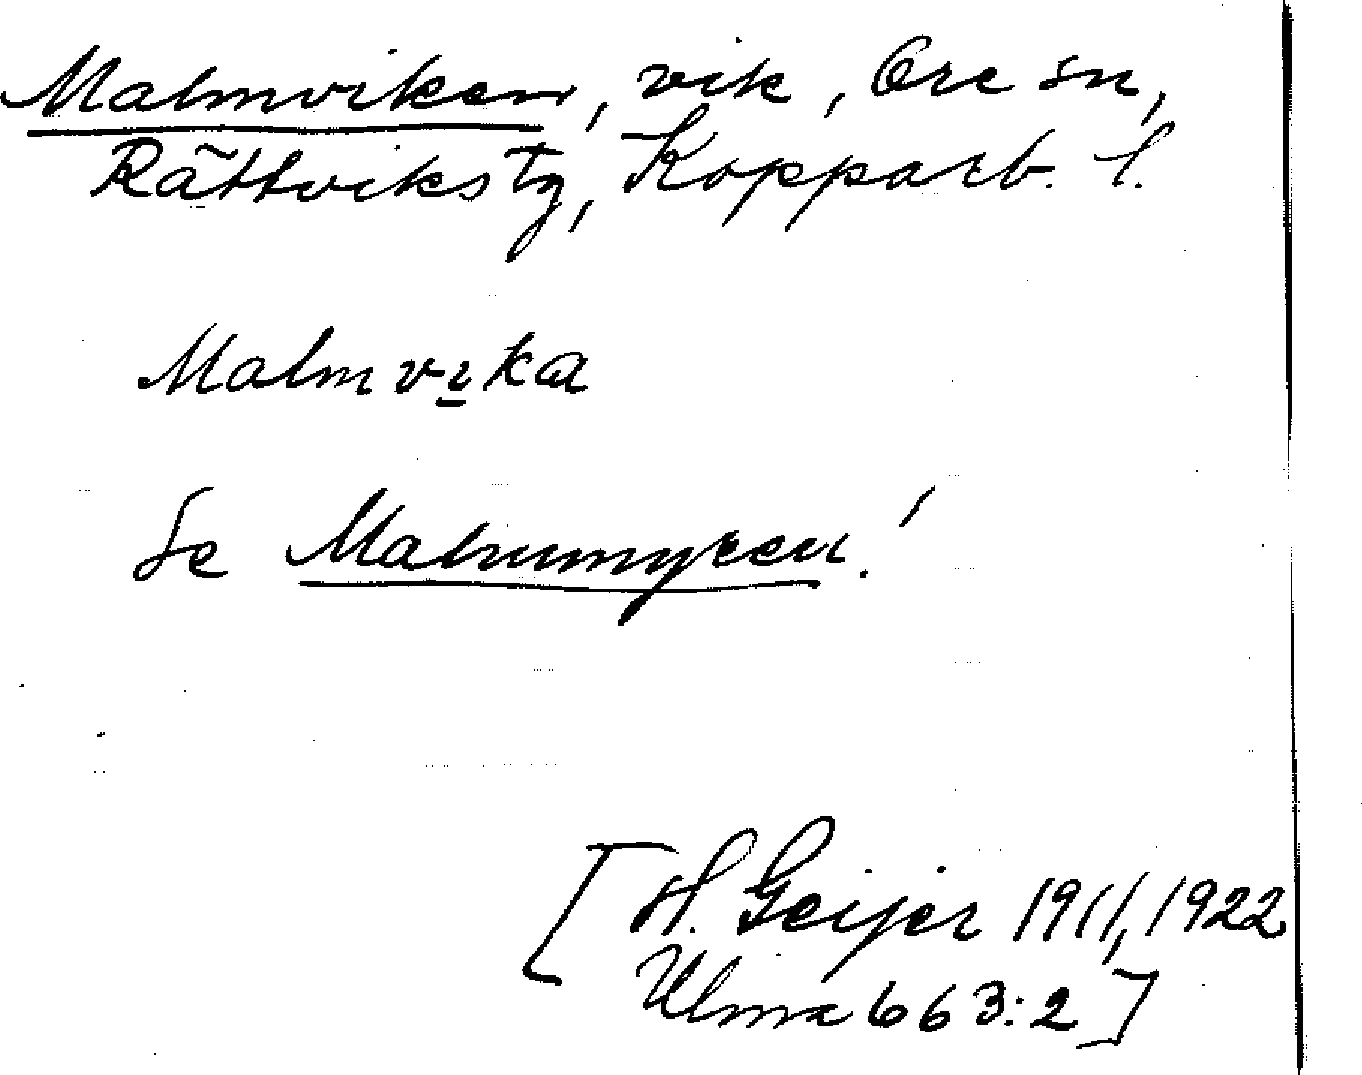 Malmviken, vik, Ore sn,
Rättviks tg, Kopparb. l.
Malmvika
Se Malmmyren!
[H. Geijer 1911, 1922
Ulma 663:2]